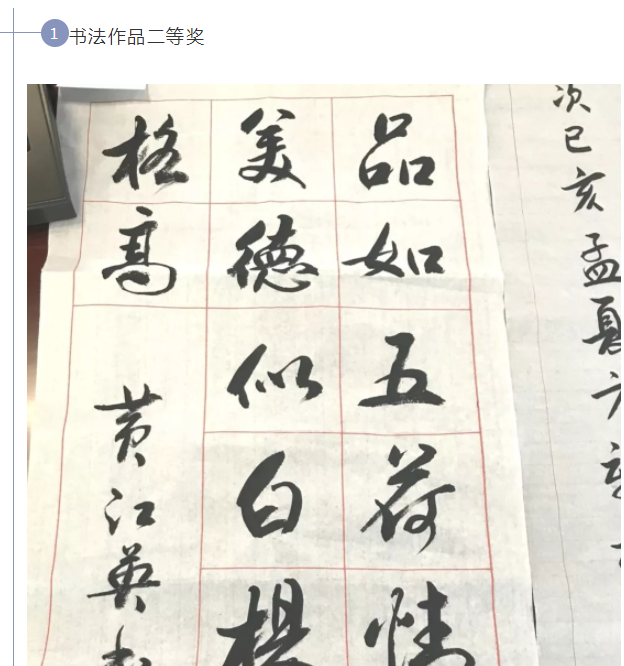 1 书法作品二等奖
品如五荷情
美德似白杨
格高
黄江英书
次己亥孟夏